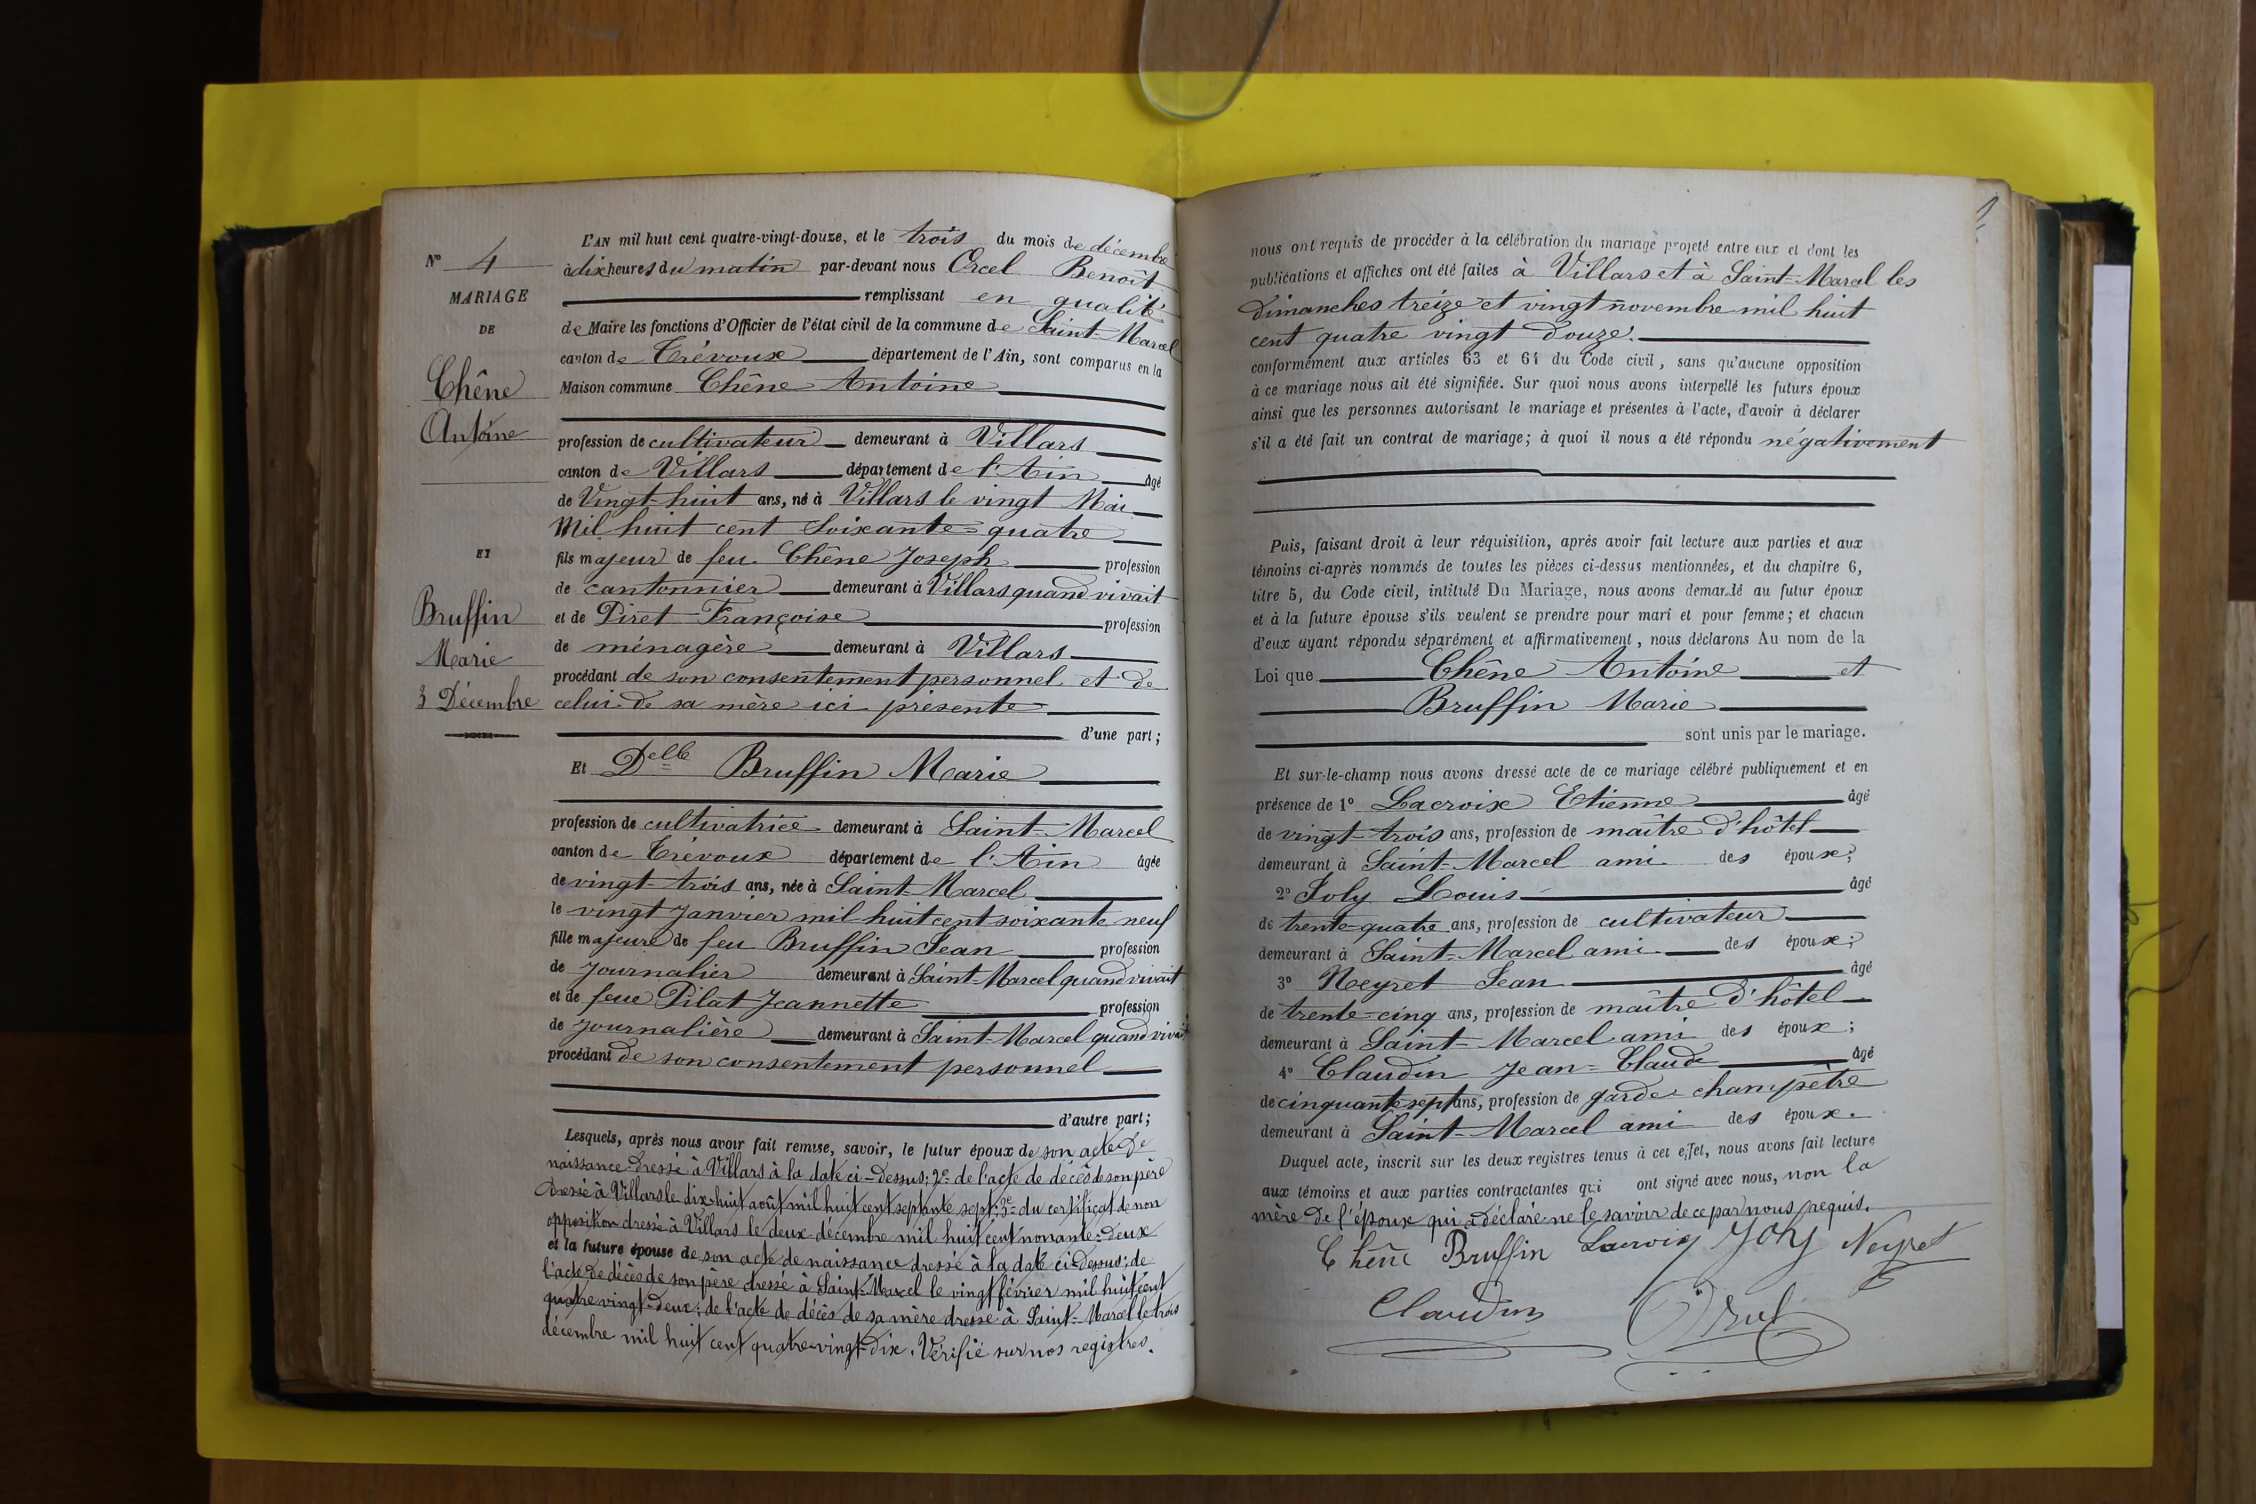 N° 4
MARIAGE
DE
Chêne
Antoine
ET
Bruffin
Marie
3 Décembre
L'AN mil huit cent quatre-vingt-douze, et le trois du mois de décembre
à dix heures du matin par-devant nous Orcel Benoît
remplissant en qualité
de Maire les fonctions d'Officier de l'état civil de la commune de Saint-Marcel
canton de Trévoux département de l'Ain, sont comparus en la
Maison commune Chêne Antoine
profession de cultivateur demeurant à Villars
canton de Villars département de l'Ain âgé
de Vingt-huit ans, né à Villars le vingt Mai
Mil huit cent soixante-quatre
fils majeur de feu Chêne Joseph profession
de cantonnier demeurant à Villars quand vivait
et de Piret Françoise profession
de ménagère demeurant à Villars
procédant de son consentement personnel et de
celui de sa mère ici présente
d'une part;
Et Delle Bruffin Marie
profession de cultivatrice demeurant à Saint-Marcel
canton de Trévoux département de l'Ain âgée
de vingt-trois ans, née à Saint-Marcel
le vingt Janvier mil huit cent soixante neuf
fille majeure de feu Bruffin Jean profession
de Journalier demeurant à Saint-Marcel quand vivait
et de feue Pilat Jeannette profession
de Journalière demeurant à Saint-Marcel quand vivait
procédant de son consentement personnel
d'autre part;
Lesquels, après nous avoir fait remise, savoir, le futur époux de son acte de
naissance dressé à Villars à la date ci-dessus; 2e de l'acte de décès de son père
dressé à Villars le dix-huit août mil huit cent septante sept; 3e du certificat de non
opposition dressé à Villars le deux décembre mil huit cent nonante-deux
et la future épouse de son acte de naissance dressé à la date ci-dessus; de
l'acte de décès de son père dressé à Saint-Marcel le vingt février mil huit cent
quatre vingt-deux; de l'acte de décès de sa mère dressé à Saint-Marcel le trois
décembre mil huit cent quatre-vingt-dix. Vérifié sur nos registres.
nous ont requis de procéder à la célébration du mariage projeté entre eux et dont les
publications et affiches ont été faites à Villars et à Saint-Marcel les
dimanches treize et vingt novembre mil huit
cent quatre vingt douze.
conformément aux articles 63 et 64 du Code civil, sans qu'aucune opposition
à ce mariage nous ait été signifiée. Sur quoi nous avons interpellé les futurs époux
ainsi que les personnes autorisant le mariage et présentes à l'acte, d'avoir à déclarer
s'il a été fait un contrat de mariage; à quoi il nous a été répondu négativement
Puis, faisant droit à leur réquisition, après avoir fait lecture aux parties et aux
témoins ci-après nommés de toutes les pièces ci-dessus mentionnées, et du chapitre 6,
titre 5, du Code civil, intitulé Du Mariage, nous avons demandé au futur époux
et à la future épouse s'ils veulent se prendre pour mari et pour femme; et chacun
d'eux ayant répondu séparément et affirmativement, nous déclarons Au nom de la
Loi que Chêne Antoine et
Bruffin Marie
sont unis par le mariage.
Et sur-le-champ nous avons dressé acte de ce mariage célébré publiquement et en
présence de 1° Lacroix Etienne âgé
de vingt-trois ans, profession de maître d'hôtel
demeurant à Saint-Marcel ami des époux;
2° Joly Louis âgé
de trente-quatre ans, profession de cultivateur
demeurant à Saint-Marcel ami des époux;
3° Neyret Jean âgé
de trente-cinq ans, profession de maître d'hôtel
demeurant à Saint-Marcel ami des époux;
4° Claudin Jean-Claude âgé
de cinquante sept ans, profession de garde champêtre
demeurant à Saint-Marcel ami des époux.
Duquel acte, inscrit sur les deux registres tenus à cet effet, nous avons fait lecture
aux témoins et aux parties contractantes qui ont signé avec nous, non la
mère de l'époux qui a déclaré ne le savoir de ce par nous requis.
Chêne Bruffin Lacroix Joly Neyret
Claudin Orcel